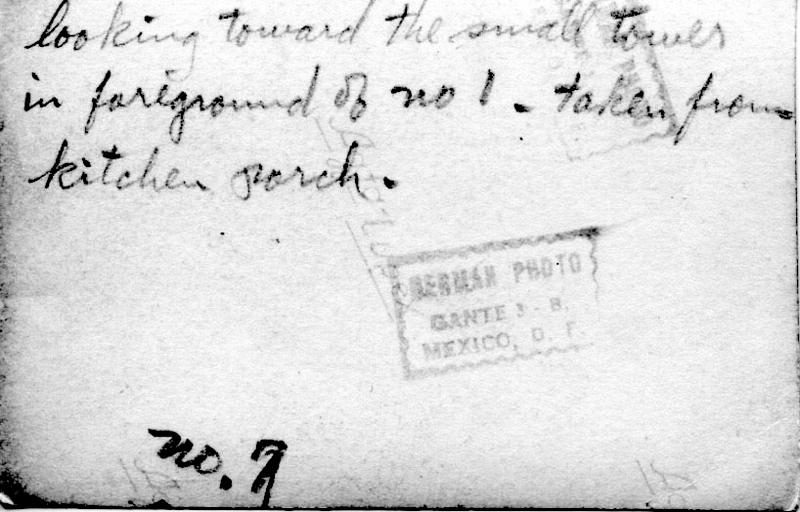 looking toward the small tower
in foreground of no 1 - taken from
kitchen porch.
GERMAN PHOTO
GANTE 3 - B.
MEXICO, D. F.
no. 7